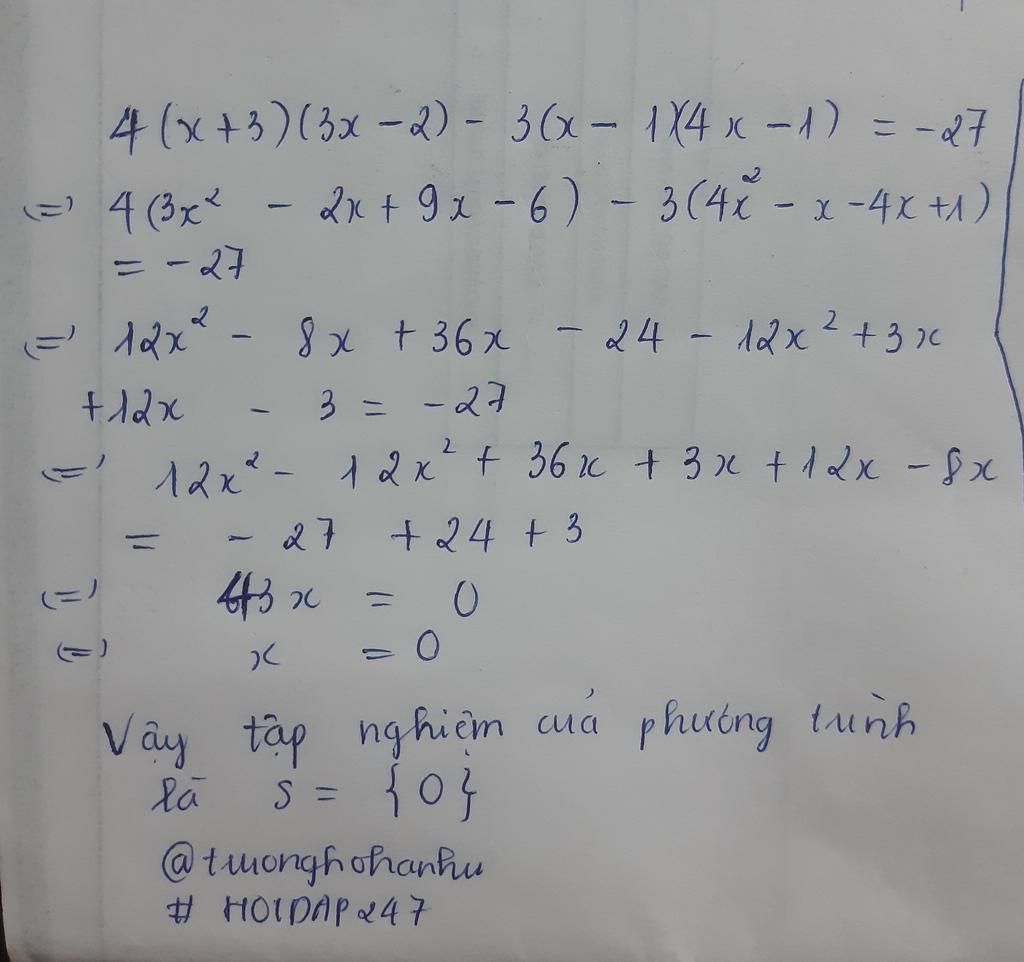 4(x+3)(3x-2) - 3(x-1)(4x-1) = -27
<=> 4(3x² - 2x + 9x - 6) - 3(4x² - x - 4x + 1)
= -27
<=> 12x² - 8x + 36x - 24 - 12x² + 3x
+12x - 3 = -27
<=> 12x² - 12x² + 36x + 3x + 12x - 8x
= -27 + 24 + 3
<=> 43x = 0
<=> x = 0
Vậy tập nghiệm của phương trình
là S = {0}
@truonghohanhu
# HOIDAP247